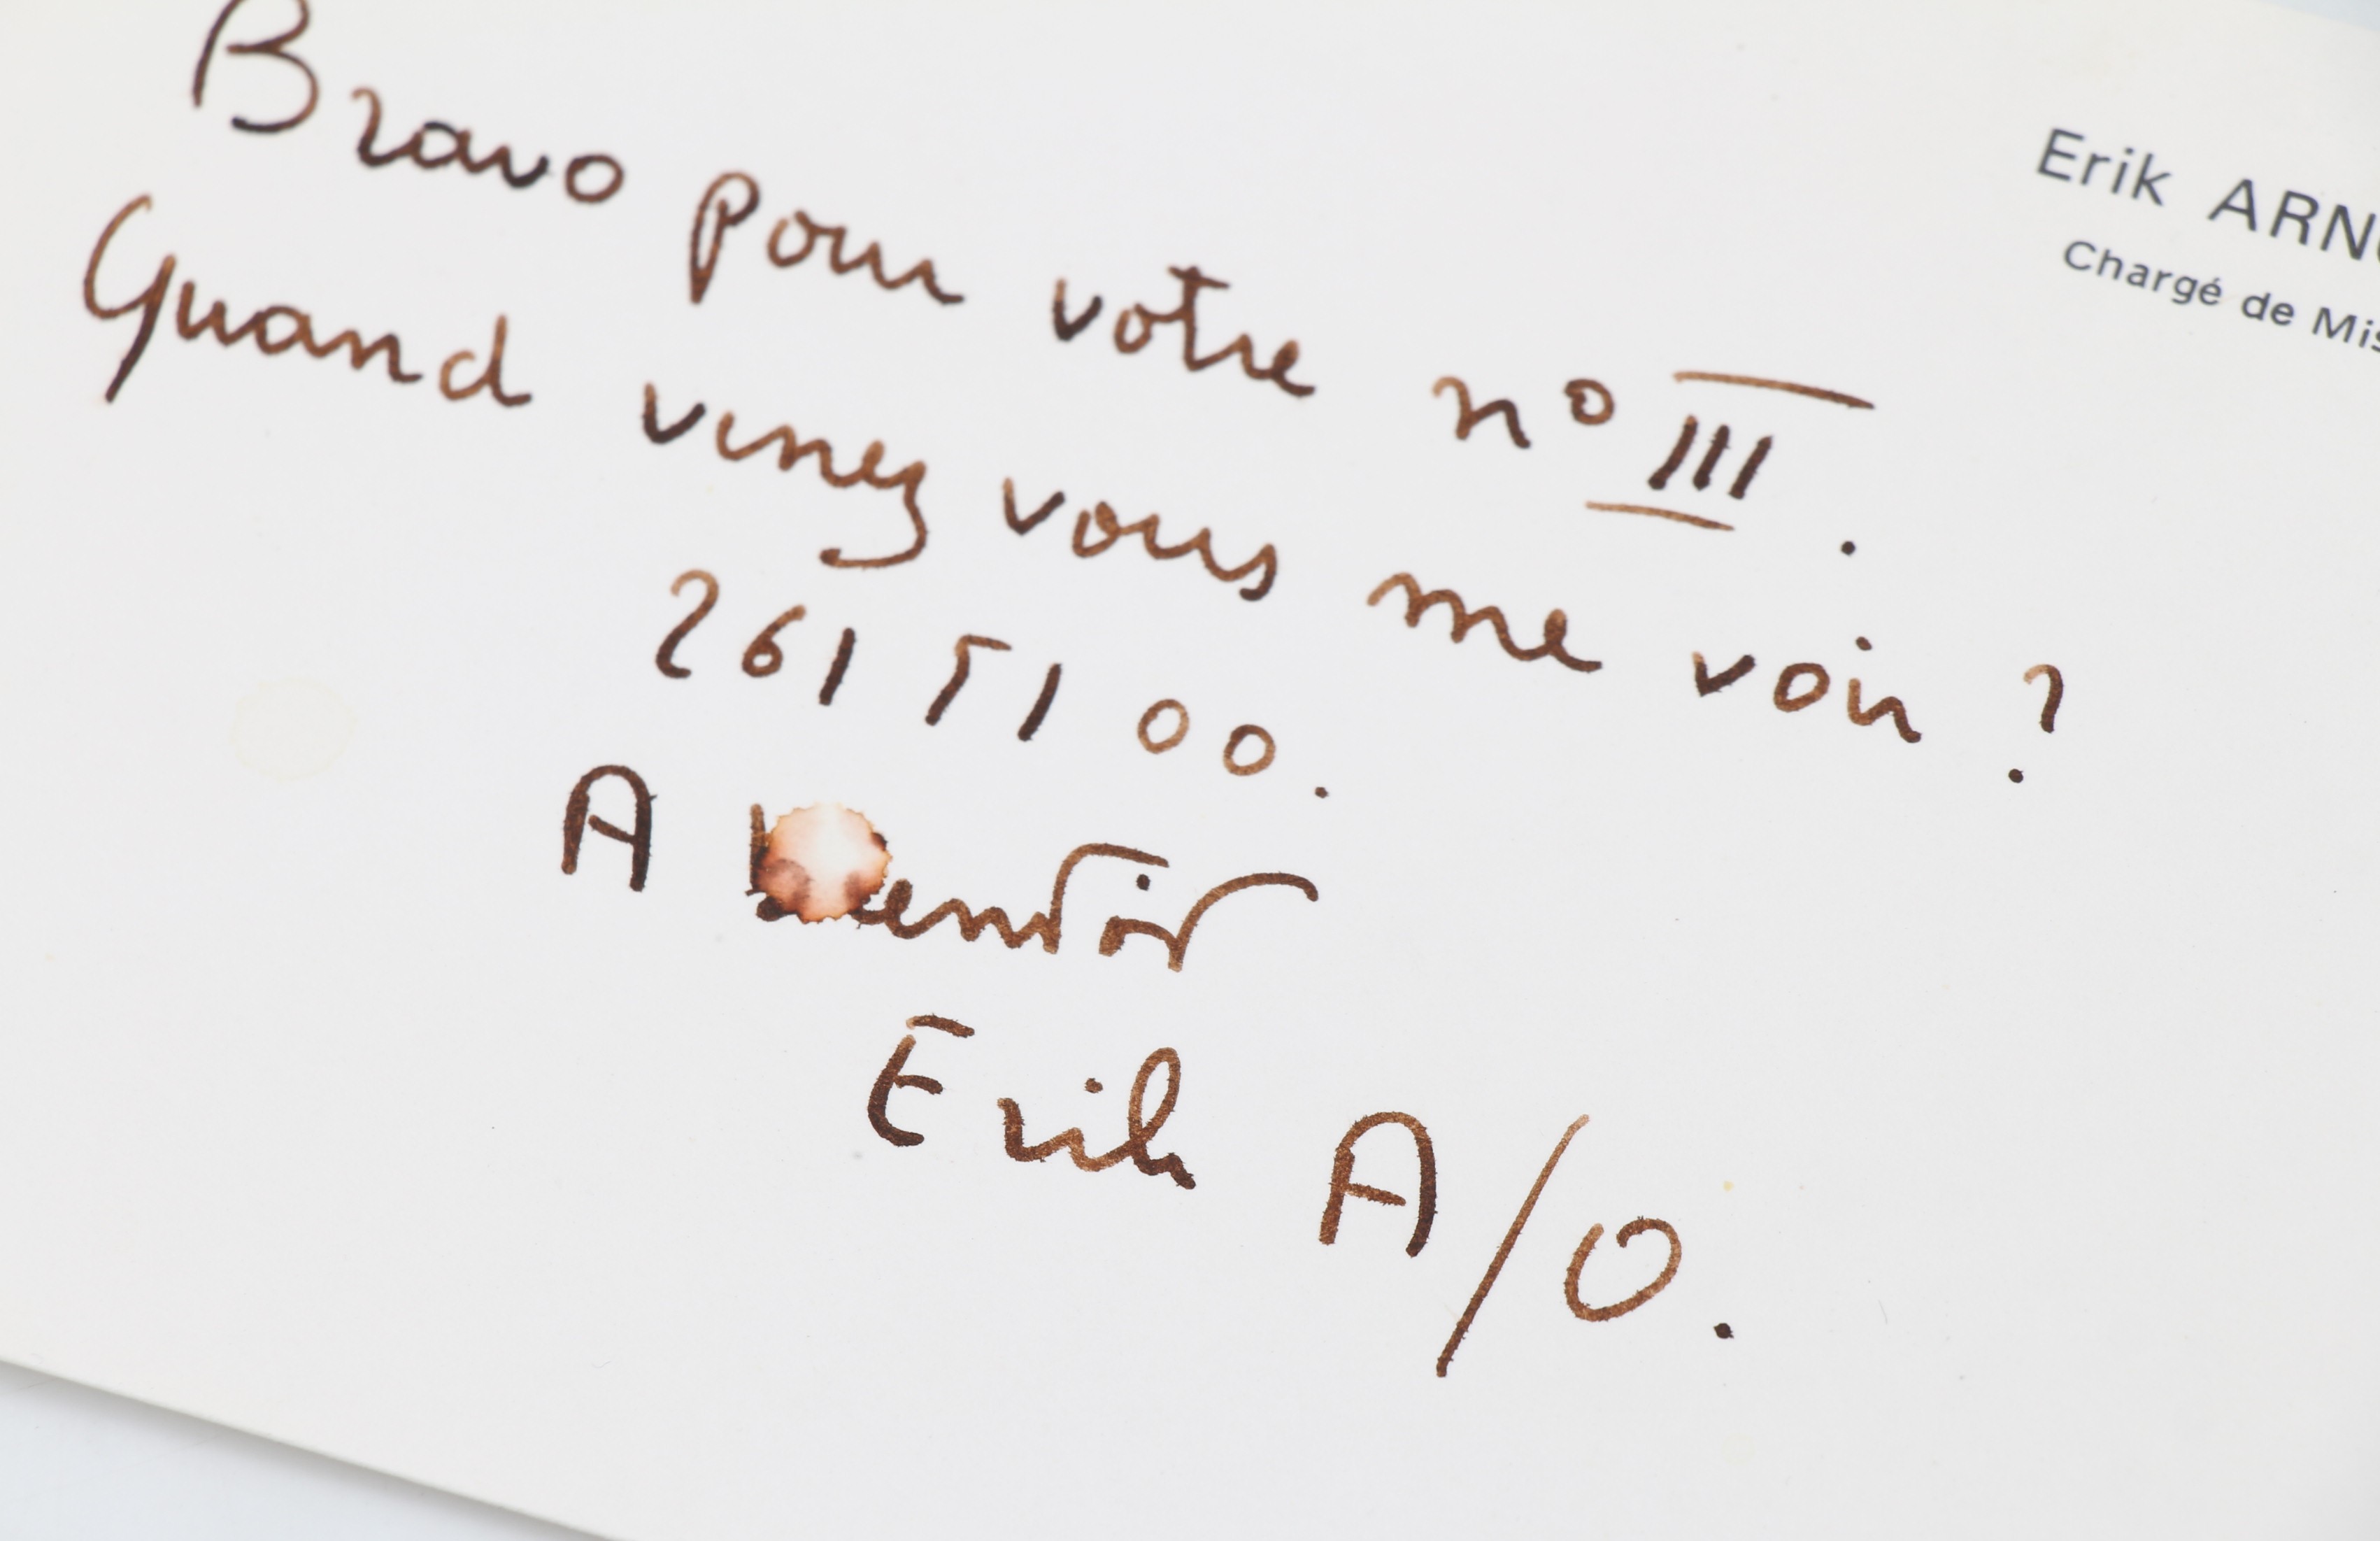 Erik ARN
Chargé de Mis
Bravo pour votre nº III.
Quand venez vous me voir ?
261 51 00.
A bientôt
Erik A/O.